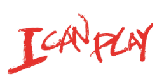 I CAN PLAY